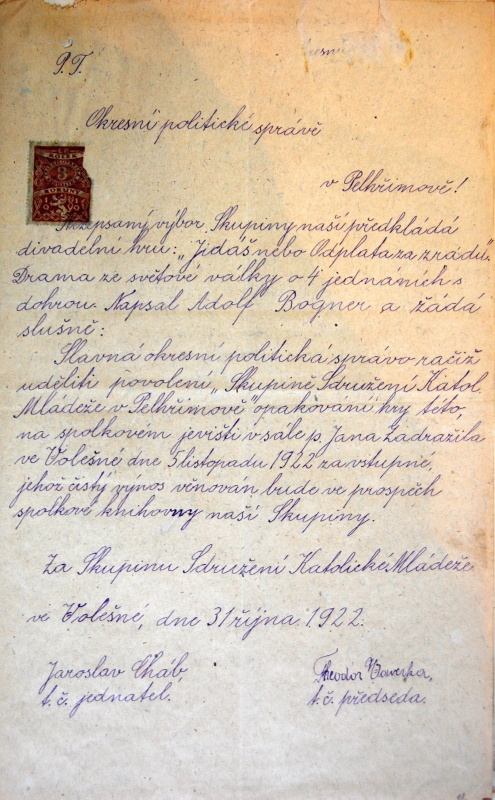 P. T.
Okresní politické správě
KOLEK
3
KORUNY
1919
v Pelhřimově!
Nížepsaný výbor Skupiny naší předkládá
divadelní hru: „Jidáš nebo Odplata za zrádu".
Drama ze světové války o 4 jednáních s
dohrou. Napsal Adolf Bogner a žádá
slušně:
Slavná okresní politická správo račiž
uděliti povolení „Skupině Sdružení Katol.
Mládeže v Pelhřimově" opakování hry této,
na spolkovém jevišti v sále p. Jana Zadražila
ve Volešné dne 5 listopadu 1922 za vstupné,
jehož čistý výnos věnován bude ve prospěch
spolkové knihovny naší Skupiny.
Za Skupinu Sdružení Katolické Mládeže
ve Volešné, dne 31 října 1922.
Jaroslav Cháb,
t. č. jednatel.
Theodor
t. č. předseda.